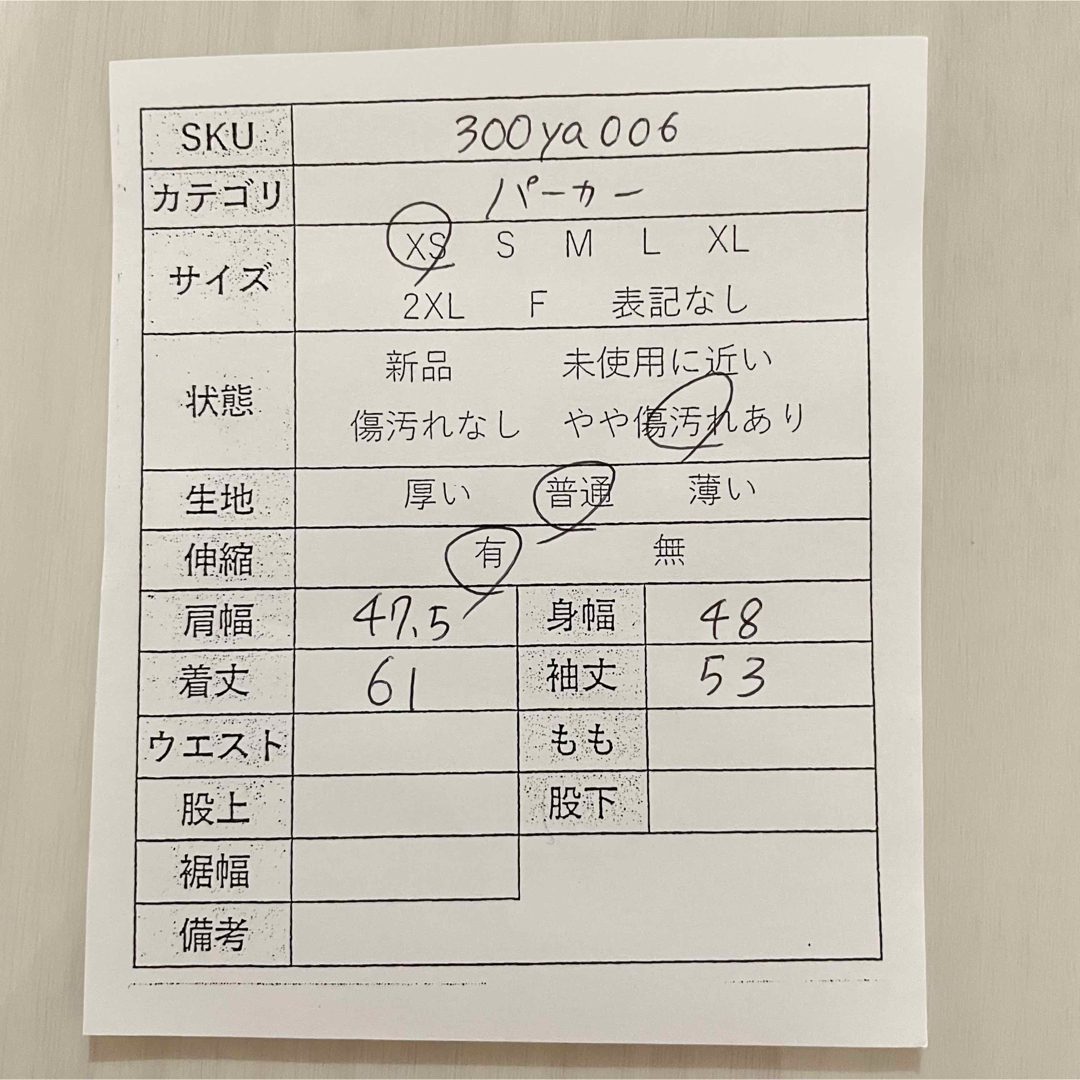 SKU 300ya006
カテゴリ パーカー
サイズ XS S M L XL
2XL F 表記なし
状態 新品 未使用に近い
傷汚れなし やや傷汚れあり
生地 厚い 普通 薄い
伸縮 有 無
肩幅 47.5 身幅 48
着丈 61 袖丈 53
ウエスト もも
股上 股下
裾幅
備考